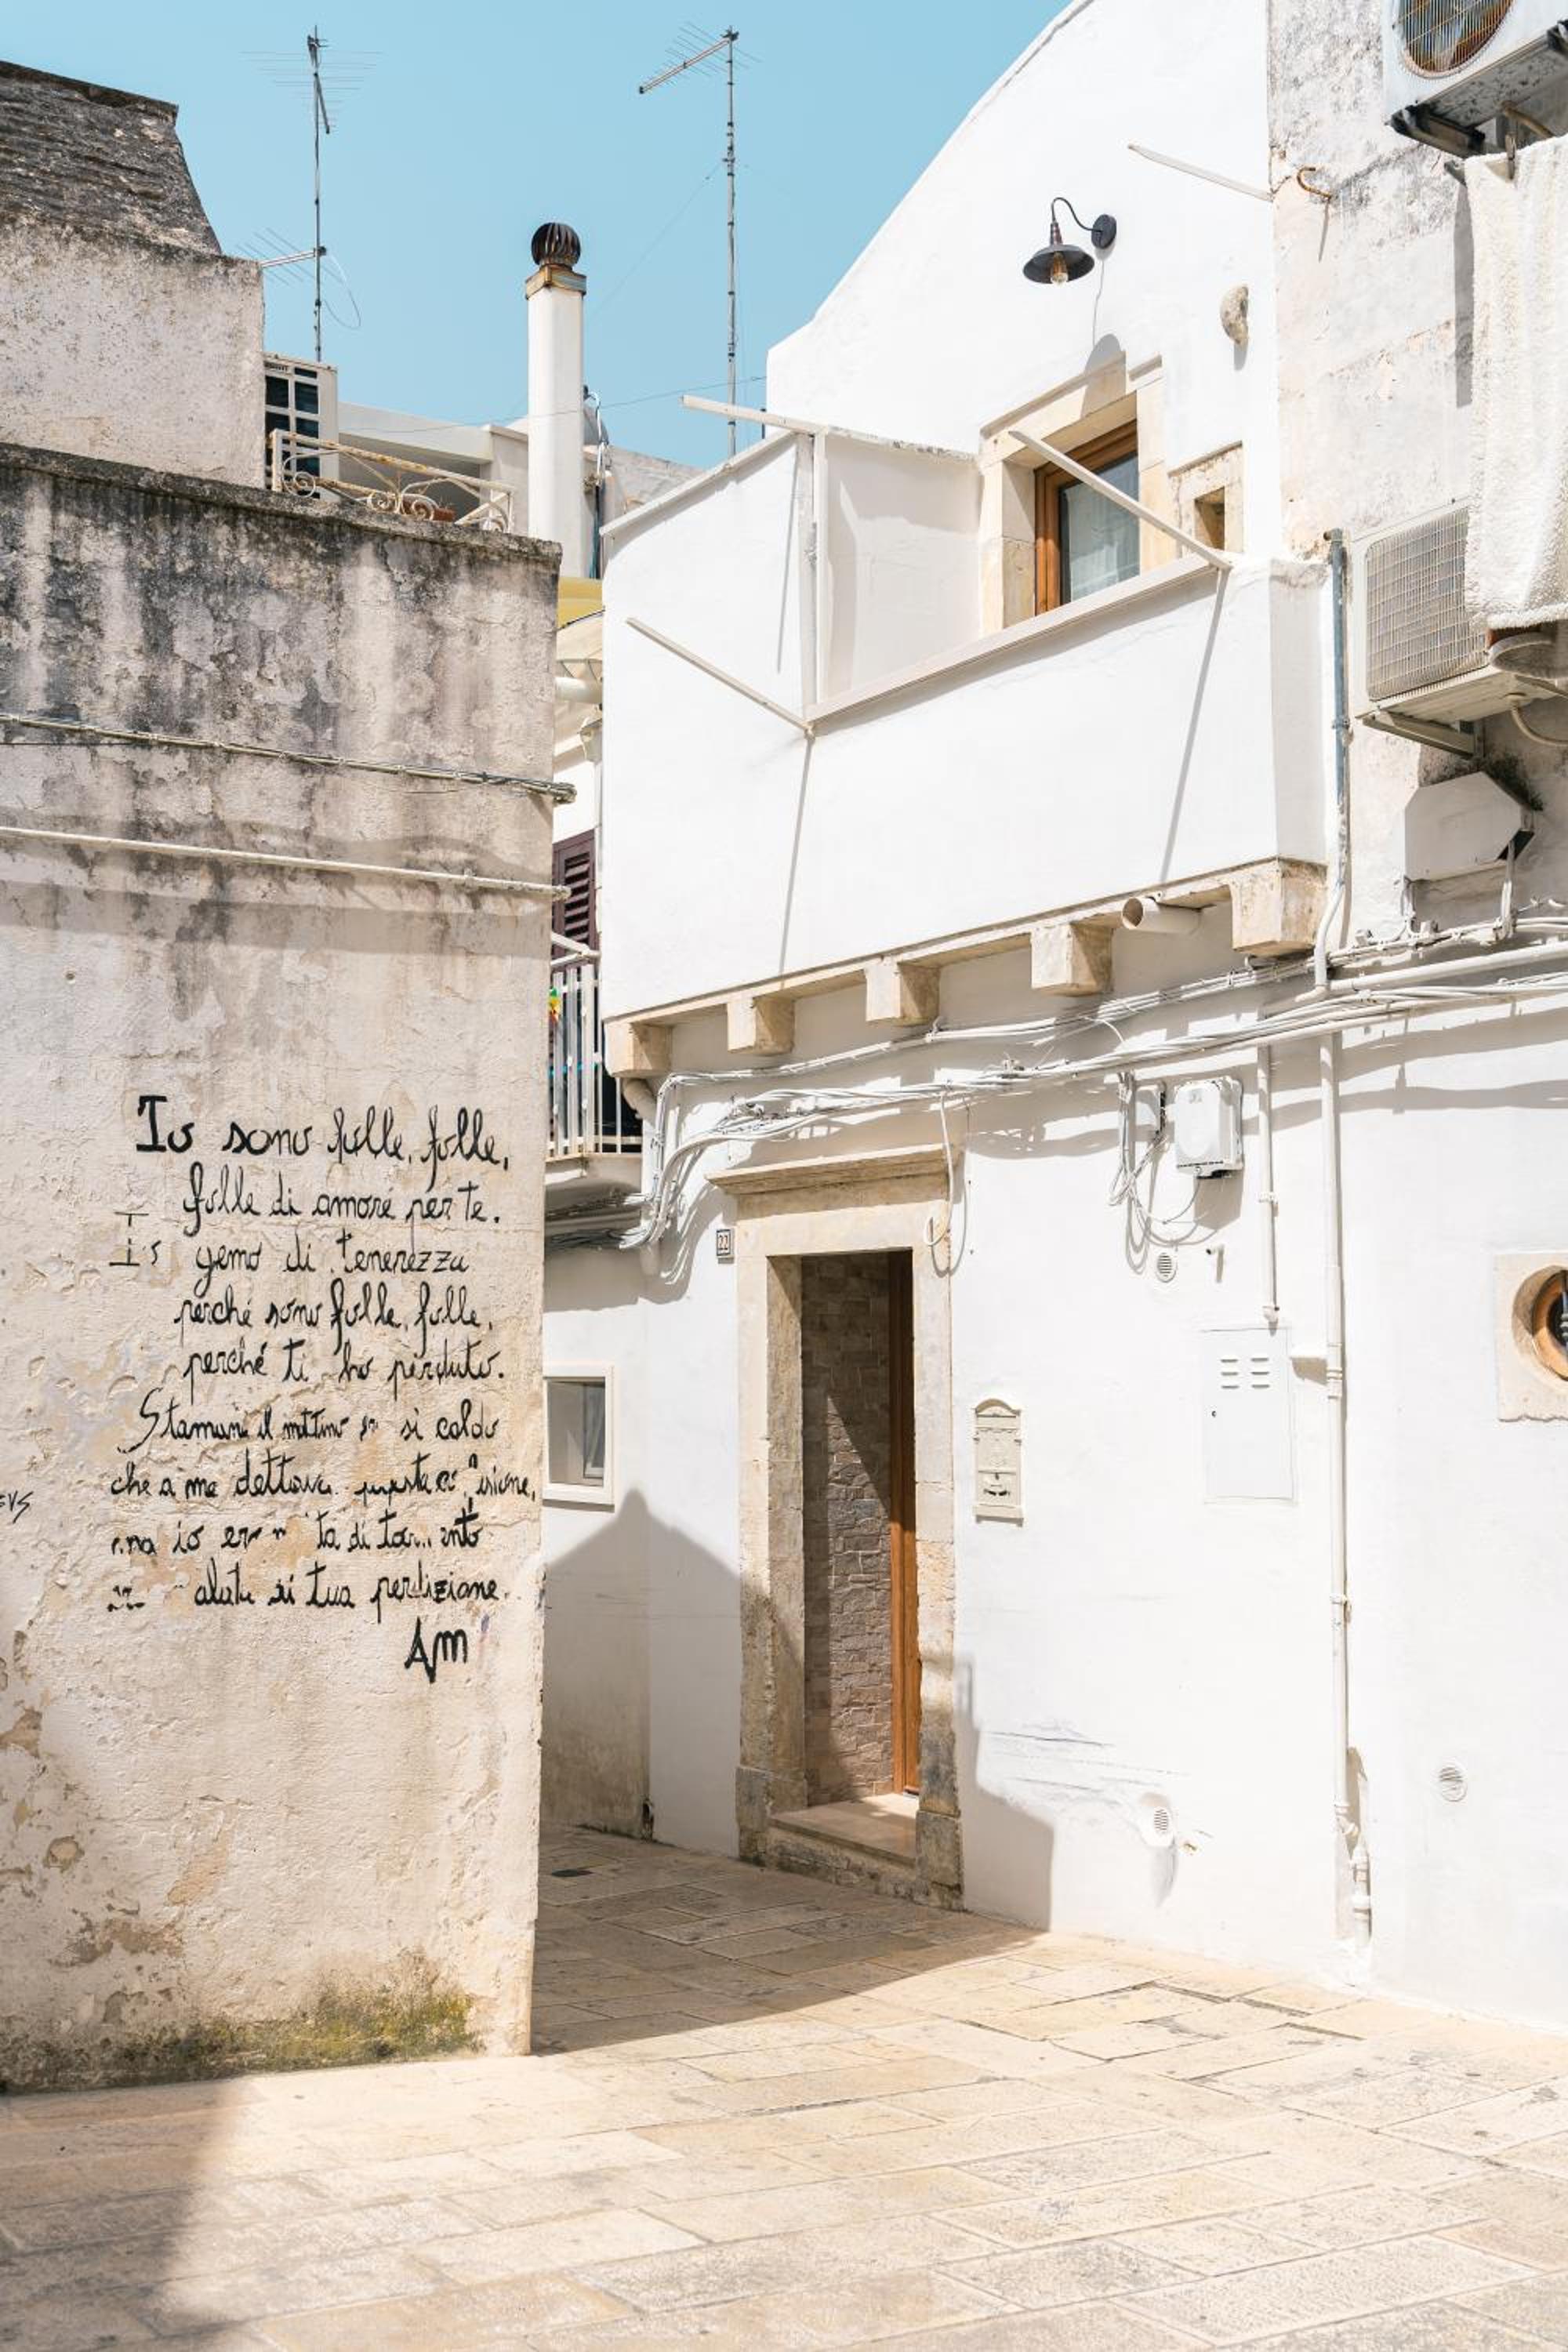 Io sono folle, folle,
folle di amore per te.
Io gemo di tenerezza
perché sono folle, folle,
perché ti ho perduto.
Stamane il mattino si caldo
che a me dettava
ma io er ta di
di tua perdizione.
Am
22